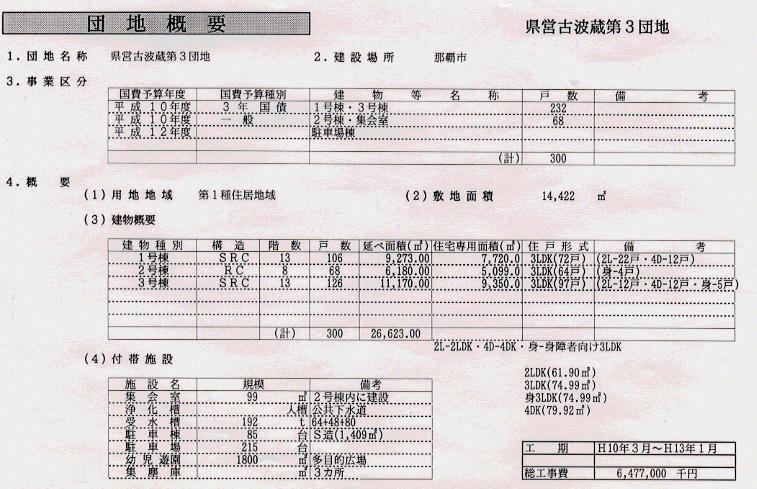 団地概要
県営古波蔵第3団地
1. 団地名称 県営古波蔵第3団地 2. 建設場所 那覇市
3. 事業区分
国費予算年度 国費予算種別 建物等名称 戸数 備考
平成10年度 3年国債 1号棟・3号棟 232
平成10年度 一般 2号棟・集会室 68
平成12年度 駐車場棟
(計) 300
4. 概要
(1) 用地地域 第1種住居地域 (2) 敷地面積 14,422 ㎡
(3) 建物概要
建物種別 構造 階数 戸数 延べ面積(㎡) 住宅専用面積(㎡) 住戸形式 備考
1号棟 SRC 13 106 9,273.00 7,720.0 3LDK(72戸) (2L-22戸・4D-12戸)
2号棟 RC 8 68 6,180.00 5,099.0 3LDK(64戸) (身-4戸)
3号棟 SRC 13 126 11,170.00 9,350.0 3LDK(97戸) (2L-12戸・4D-12戸・身-5戸)
(計) 300 26,623.00
2L-2LDK・4D-4DK・身-身障者向け3LDK
(4) 付帯施設
施設名 規模 備考
集会室 99 ㎡ 2号棟内に建設
浄化槽 人槽 公共下水道
受水槽 192 t 64+48+80
駐車棟 85 台 S造(1,409㎡)
駐車場 215 台
幼児遊園 1800 ㎡ 多目的広場
集塵庫 ㎡ 3カ所
2LDK(61.90㎡)
3LDK(74.99㎡)
身3LDK(74.99㎡)
4DK(79.92㎡)
工期 H10年3月～H13年1月
総工事費 6,477,000 千円